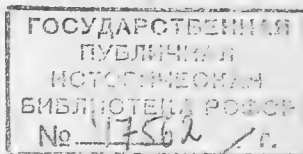 ГОСУДАРСТВЕННАЯ
ПУБЛИЧНАЯ
ИСТОРИЧЕСКАЯ
БИБЛИОТЕКА РСФСР
№ 17562 г.